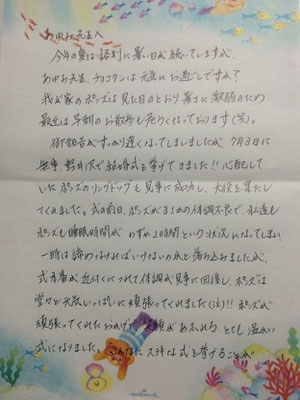 あゆみ先生へ
今年の夏は格別に暑い日が続いていますが、
あゆみ先生、チョコタンは元気にお過ごしですか？
我が家のポンズは見た目のとおり暑さに敏感のため、
最近は早朝のお散歩も危うくなっております(笑)。
御報告がすっかり遅くなってしまいましたが、7月3日に
無事、軽井沢で結婚式を挙げてきました!!心配して
いたポンズのリングドッグも見事に成功し、大役を果たし
てくれました。式の前日、ポンズがまさかの体調不良で、私達も
ポンズも睡眠時間がわずか2時間という状況になってしまい
一時は諦めなければいけないのかと落ち込みましたが、
式本番が近付くにつれて体調が見事に回復し、ポンズは
堂々と元気いっぱいに頑張ってくれました(泣)!!ポンズが
頑張ってくれたおかげで笑顔があふれるとても温かい
式になりました。こんなにステキな式を挙げることが
Hallmark